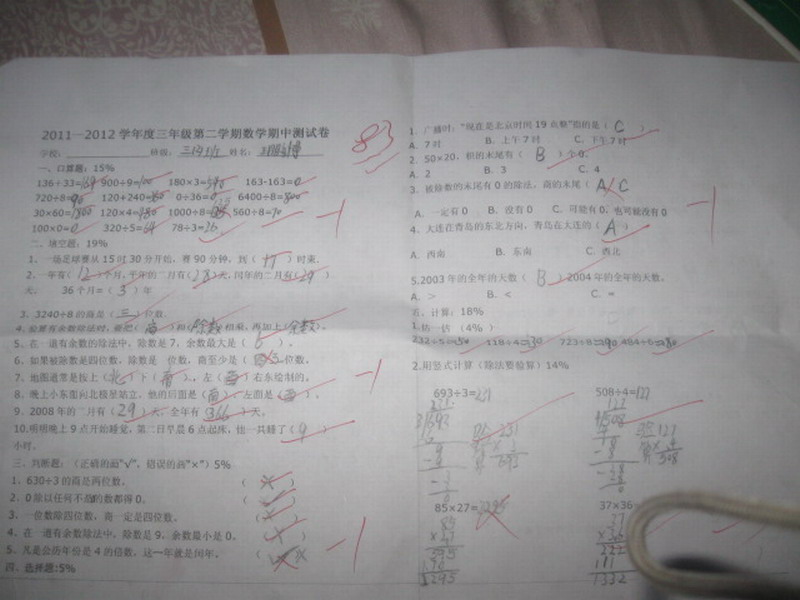 2011—2012 学年度三年级第二学期数学期中测试卷
83
学校: 班级: 姓名:
一、口算题: 15%
136+33=169 900÷9=100 180×3=540 163-163=0
720÷8=90 120+240= 0÷36=0 6400÷8=800
30×60=1800 120×4=480 1000÷8= 560÷8=70
100×0=0 320÷5=64 78÷3=26
-1
二、填空题: 19%
1. 一场足球赛从 15 时 30 分开始, 赛 90 分钟, 到( 17 )时束.
2. 一年有( 12 )个月, 平年的二月有( 28 )天, 闰年的二月有( 29 )
天. 36 个月=( 3 )年
3. 3240÷8 的商是( 三 )位数.
4. 验算有余数除法时, 要把( 商 )和(除数)相乘, 再加上(余数).
5. 在一道有余数的除法中, 除数是 7, 余数最大是( 6 ).
6. 如果被除数是四位数, 除数是 位数, 商至少是( )位数.
7. 地图通常是按上(北)下(南), 左(西)右东绘制的.
-1
8. 晚上小东面向北极星站立, 他的后面是(南), 左面是(西).
9. 2008 年的二月有( 29 )天, 全年有( 366 )天.
10.明明晚上 9 点开始睡觉, 第二日早晨 6 点起床, 他一共睡了( 9 )
小时.
三、判断题: (正确的画"√", 错误的画"×") 5%
1. 630÷3 的商是两位数. ( × )
2. 0 除以任何不是0的数都得 0. ( √ )
3. 一位数除四位数, 商一定是四位数. ( × )
4. 在一道有余数除法中, 除数是 9, 余数最小是 0.
5. 凡是公历年份是 4 的倍数, 这一年就是闰年.
-1
四、选择题:5%
1. 广播时: "现在是北京时间 19 点整"指的是( C )
A. 7 时 B. 上午 7 时 C. 下午 7 时
2. 50×20, 积的末尾有( B )个 0.
A. 2 B. 3 C. 4
3. 被除数的末尾有 0 的除法, 商的末尾( A C
A. 一定有 0 B. 没有 0 C. 可能有 0, 也可能没有 0
-1
4. 大连在青岛的东北方向, 青岛在大连的( A )
A. 西南 B. 东南 C. 西北
5.2003 年的全年的天数( B )2004 年的全年的天数.
A. > B. < C. =
五、计算: 18%
1.估一估 (4%)
232÷5≈50 118÷4≈30 723÷8≈90 484÷6≈80
2.用竖式计算(除法要验算) 14%
693÷3=231 508÷4=127
85×27=2295 37×36=
1332